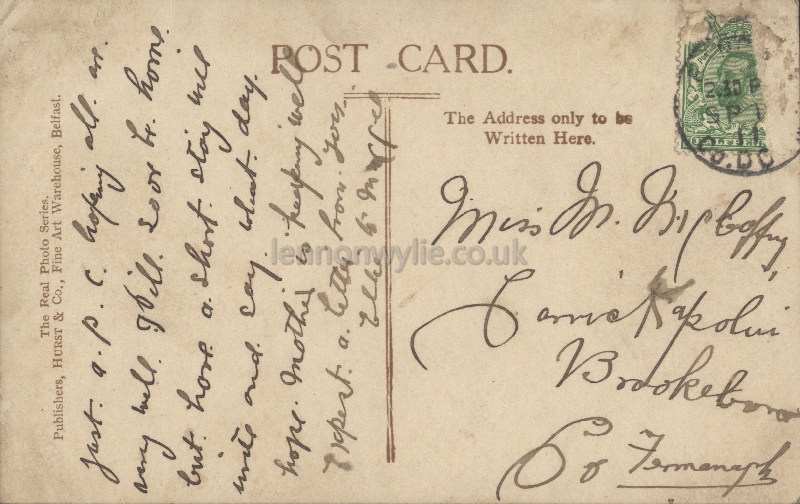 POST CARD.
The Address only to be
Written Here.
The Real Photo Series.
Publishers, HURST & Co., Fine Art Warehouse, Belfast.
Just. a. P. C. hoping all. are.
very well. Will. soon be. home.
but. have. a. short. stay. will
write and. say what. day.
hope. Mother is keeping well
Expect. a. letter. from. you.
Miss M.
Brookeboro
Co Fermanagh
lennonwylie.co.uk
30 P
11
CO. DO